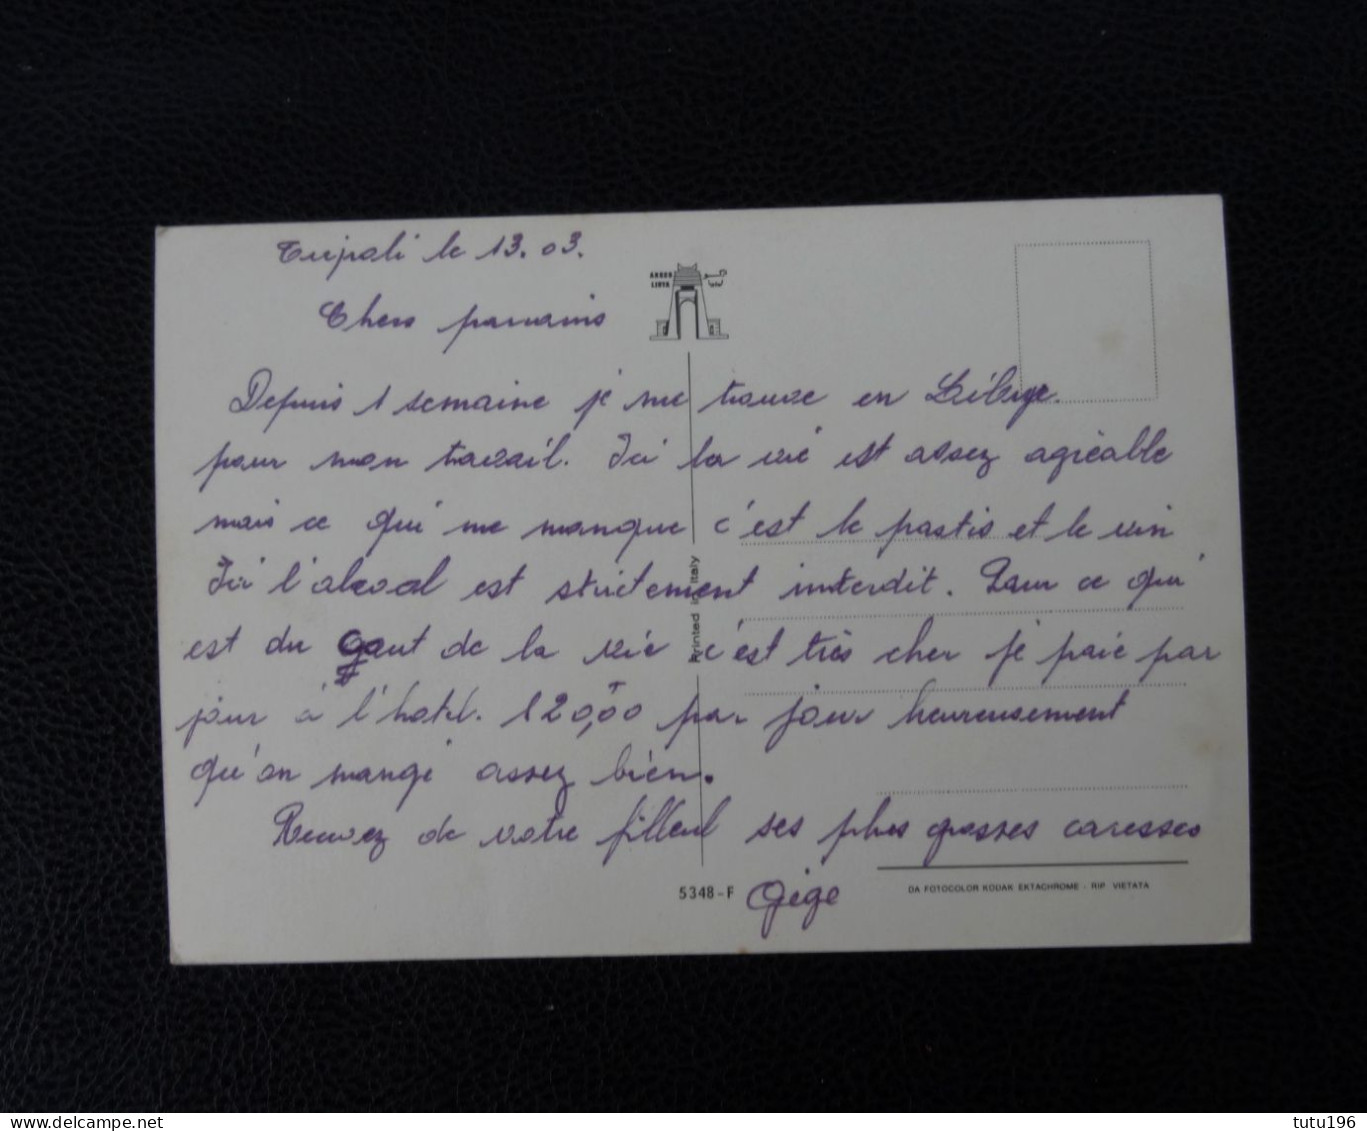 Tripoli le 13.03.
Chers parrains
Depuis 1 semaine je me trouve en Libye.
pour mon travail. Ici la vie est assez agréable
mais ce qui me manque c'est le pastis et le vin
Ici l'alcool est strictement interdit. Pour ce qui
est du gout de la vie c'est très cher je paie par
jour à l'hotel. 120,00 par jour heureusement
qu'on mange assez bien.
Recevez de votre filleul ses plus grosses caresses
Gégé
LIBYA
Printed in Italy
5348-F
DA FOTOCOLOR KODAK EKTACHROME - RIP. VIETATA
www.delcampe.net
tutu196